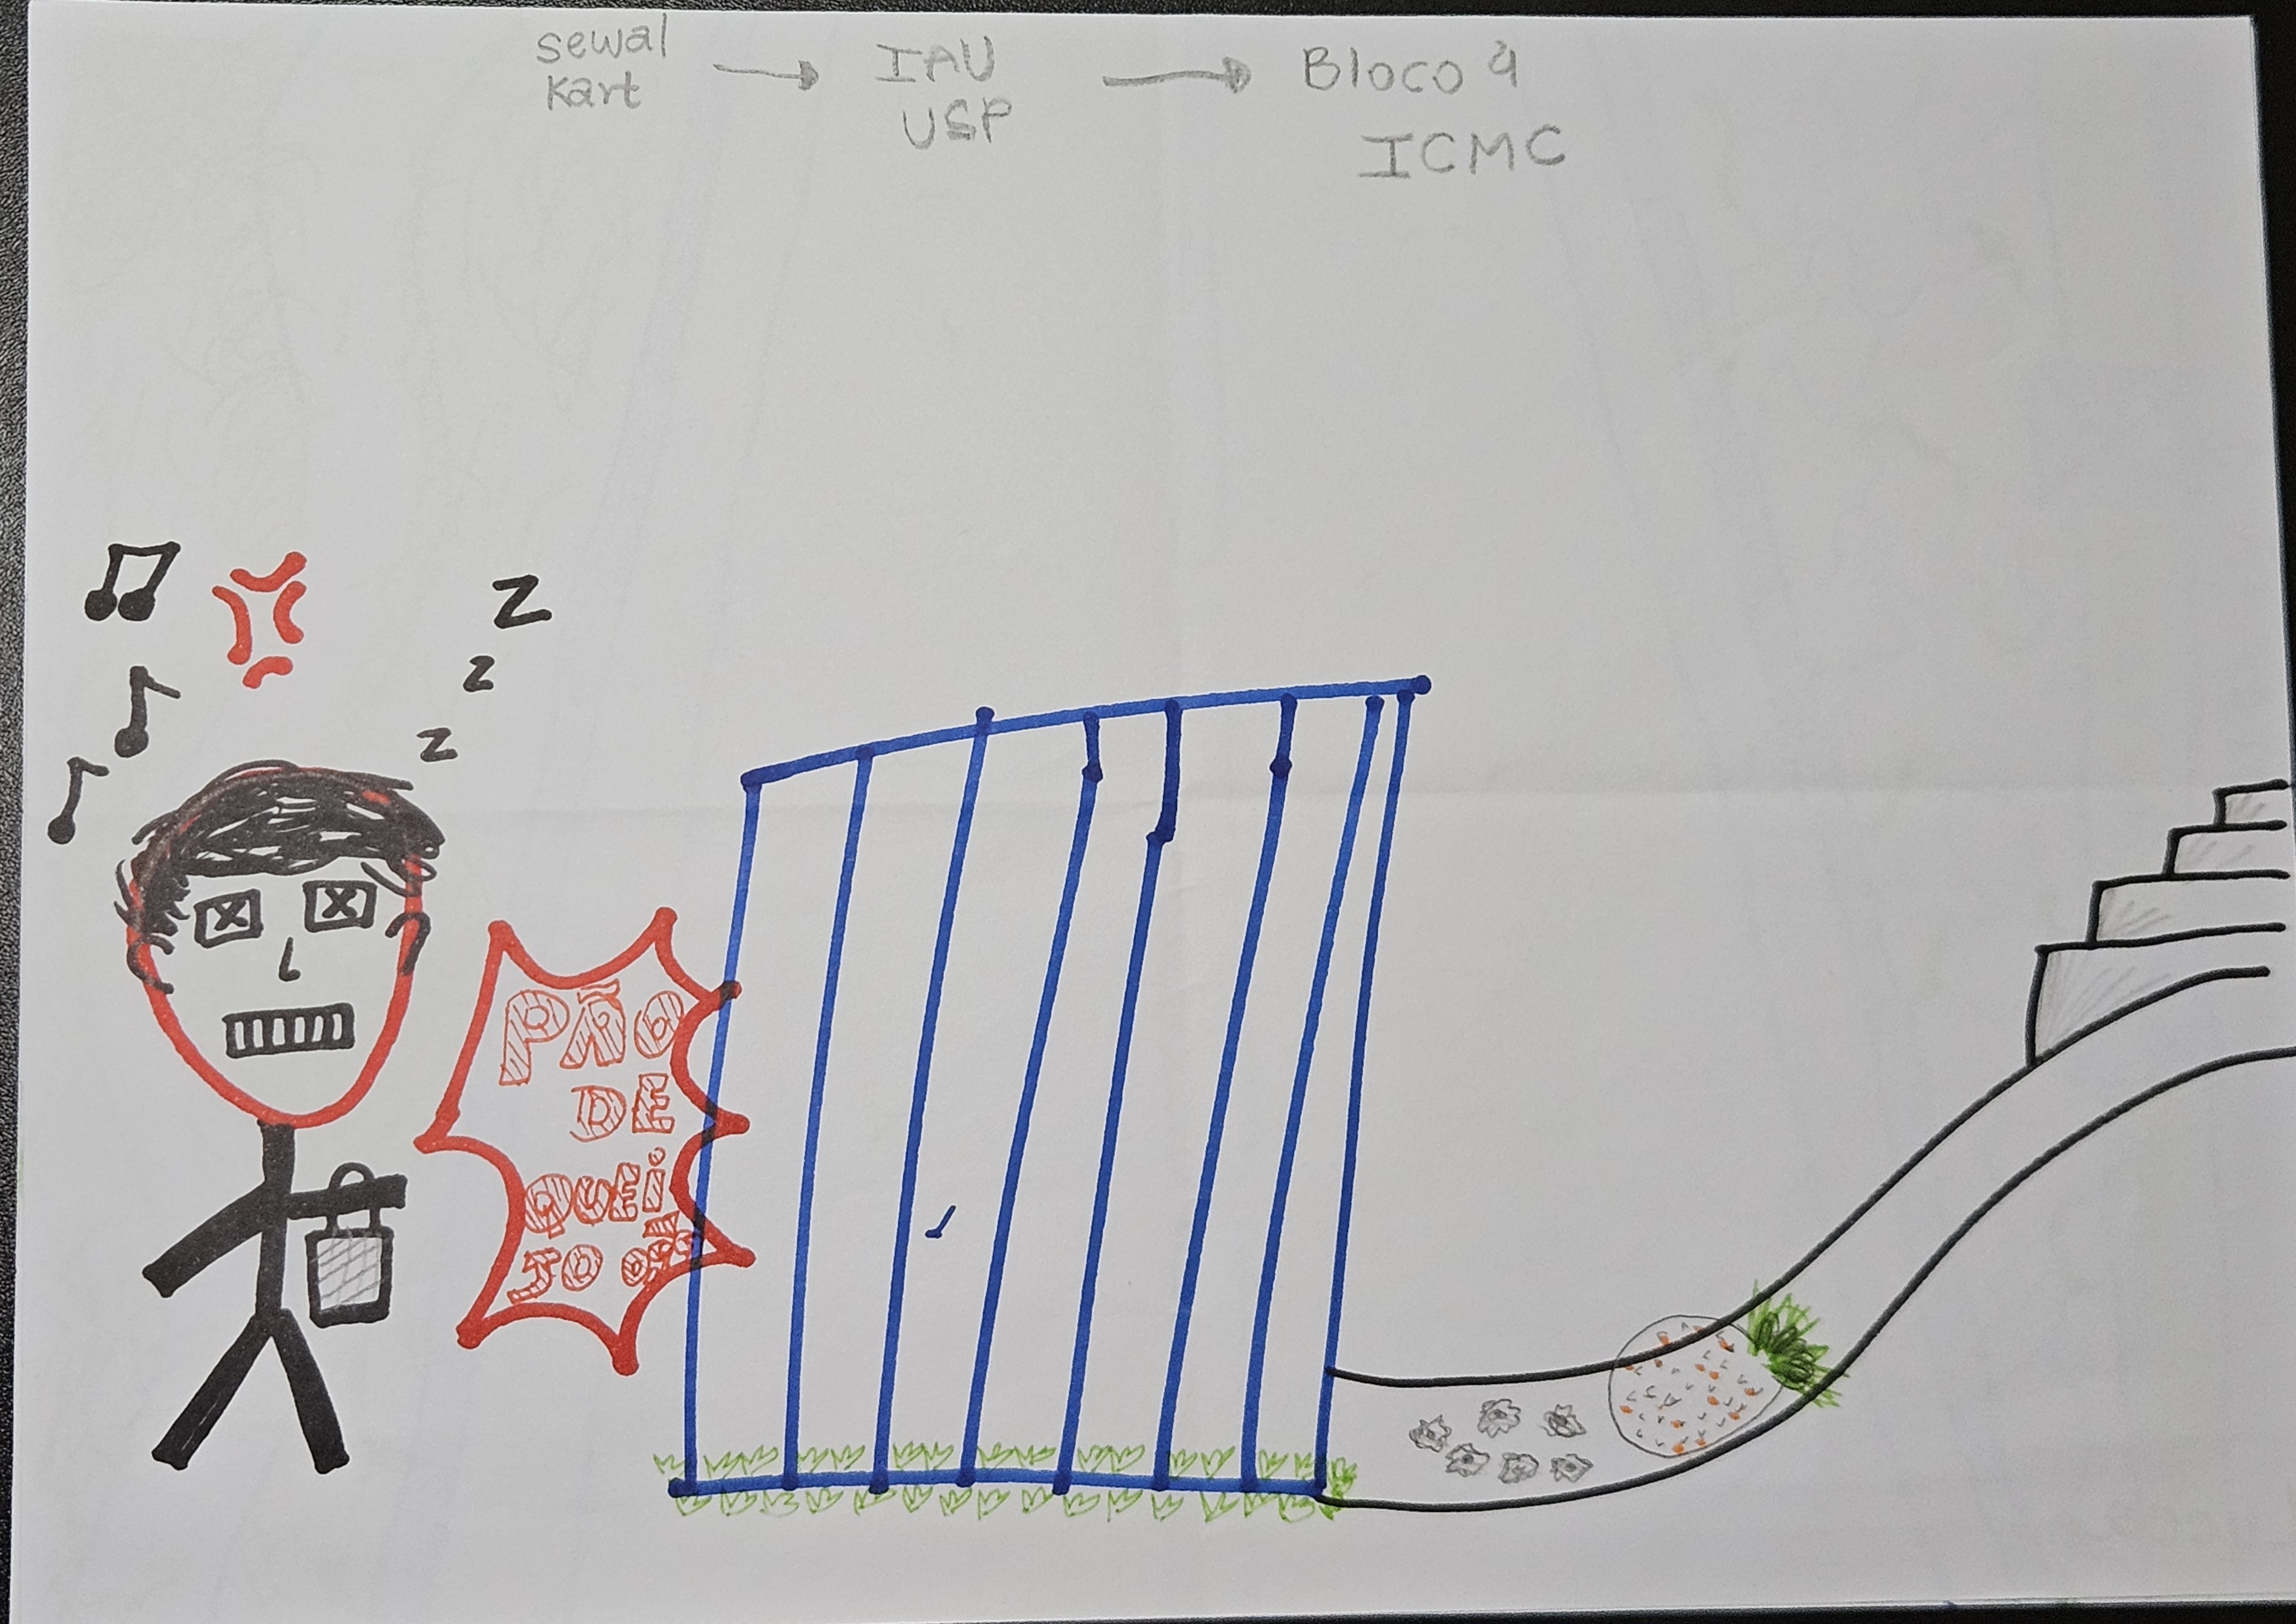 sewal
kart → IAU → Bloco 4
USP
ICMC
Z
z
z
PÃO
DE
QUEI
JO